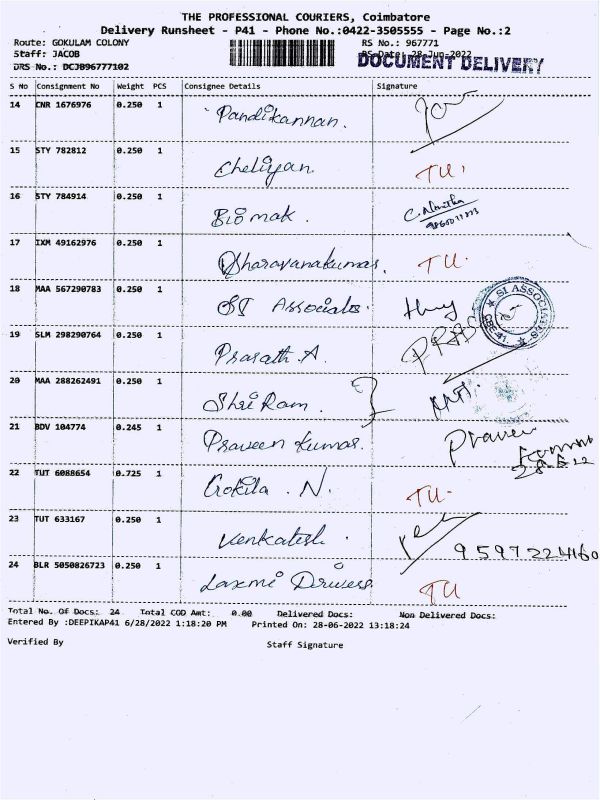 THE PROFESSIONAL COURIERS, Coimbatore
Delivery Runsheet - P41 - Phone No.:0422-3505555 - Page No.:2
Route: GOKULAM COLONY RS No.: 967771
Staff: JACOB RS Date: 28-Jun-2022
DRS No.: DCJB96777102 DOCUMENT DELIVERY
S No Consignment No Weight PCS Consignee Details Signature
14 CNR 1676976 0.250 1 Pandikannan.
15 STY 782812 0.250 1 Cheliyan. TU.
16 STY 784914 0.250 1 Biomak.
17 IXM 49162976 0.250 1 Dsharavanakumar. TU.
18 MAA 567290783 0.250 1 SI Associates. SI ASSOCIATES CBE-41.
19 SLM 298290764 0.250 1 Prasath.A.
20 MAA 288262491 0.250 1 Shri Ram.
21 BDV 104774 0.245 1 Praveen Kumar. Praveen
22 TUT 6088654 0.725 1 Gokila . N. TU-
23 TUT 633167 0.250 1 Venkatesh. 9597224160
24 BLR 5050826723 0.250 1 Laxmi Drivers TU
Total No. Of Docs: 24 Total COD Amt: 0.00 Delivered Docs: Non Delivered Docs:
Entered By :DEEPIKAP41 6/28/2022 1:18:20 PM Printed On: 28-06-2022 13:18:24
Verified By Staff Signature